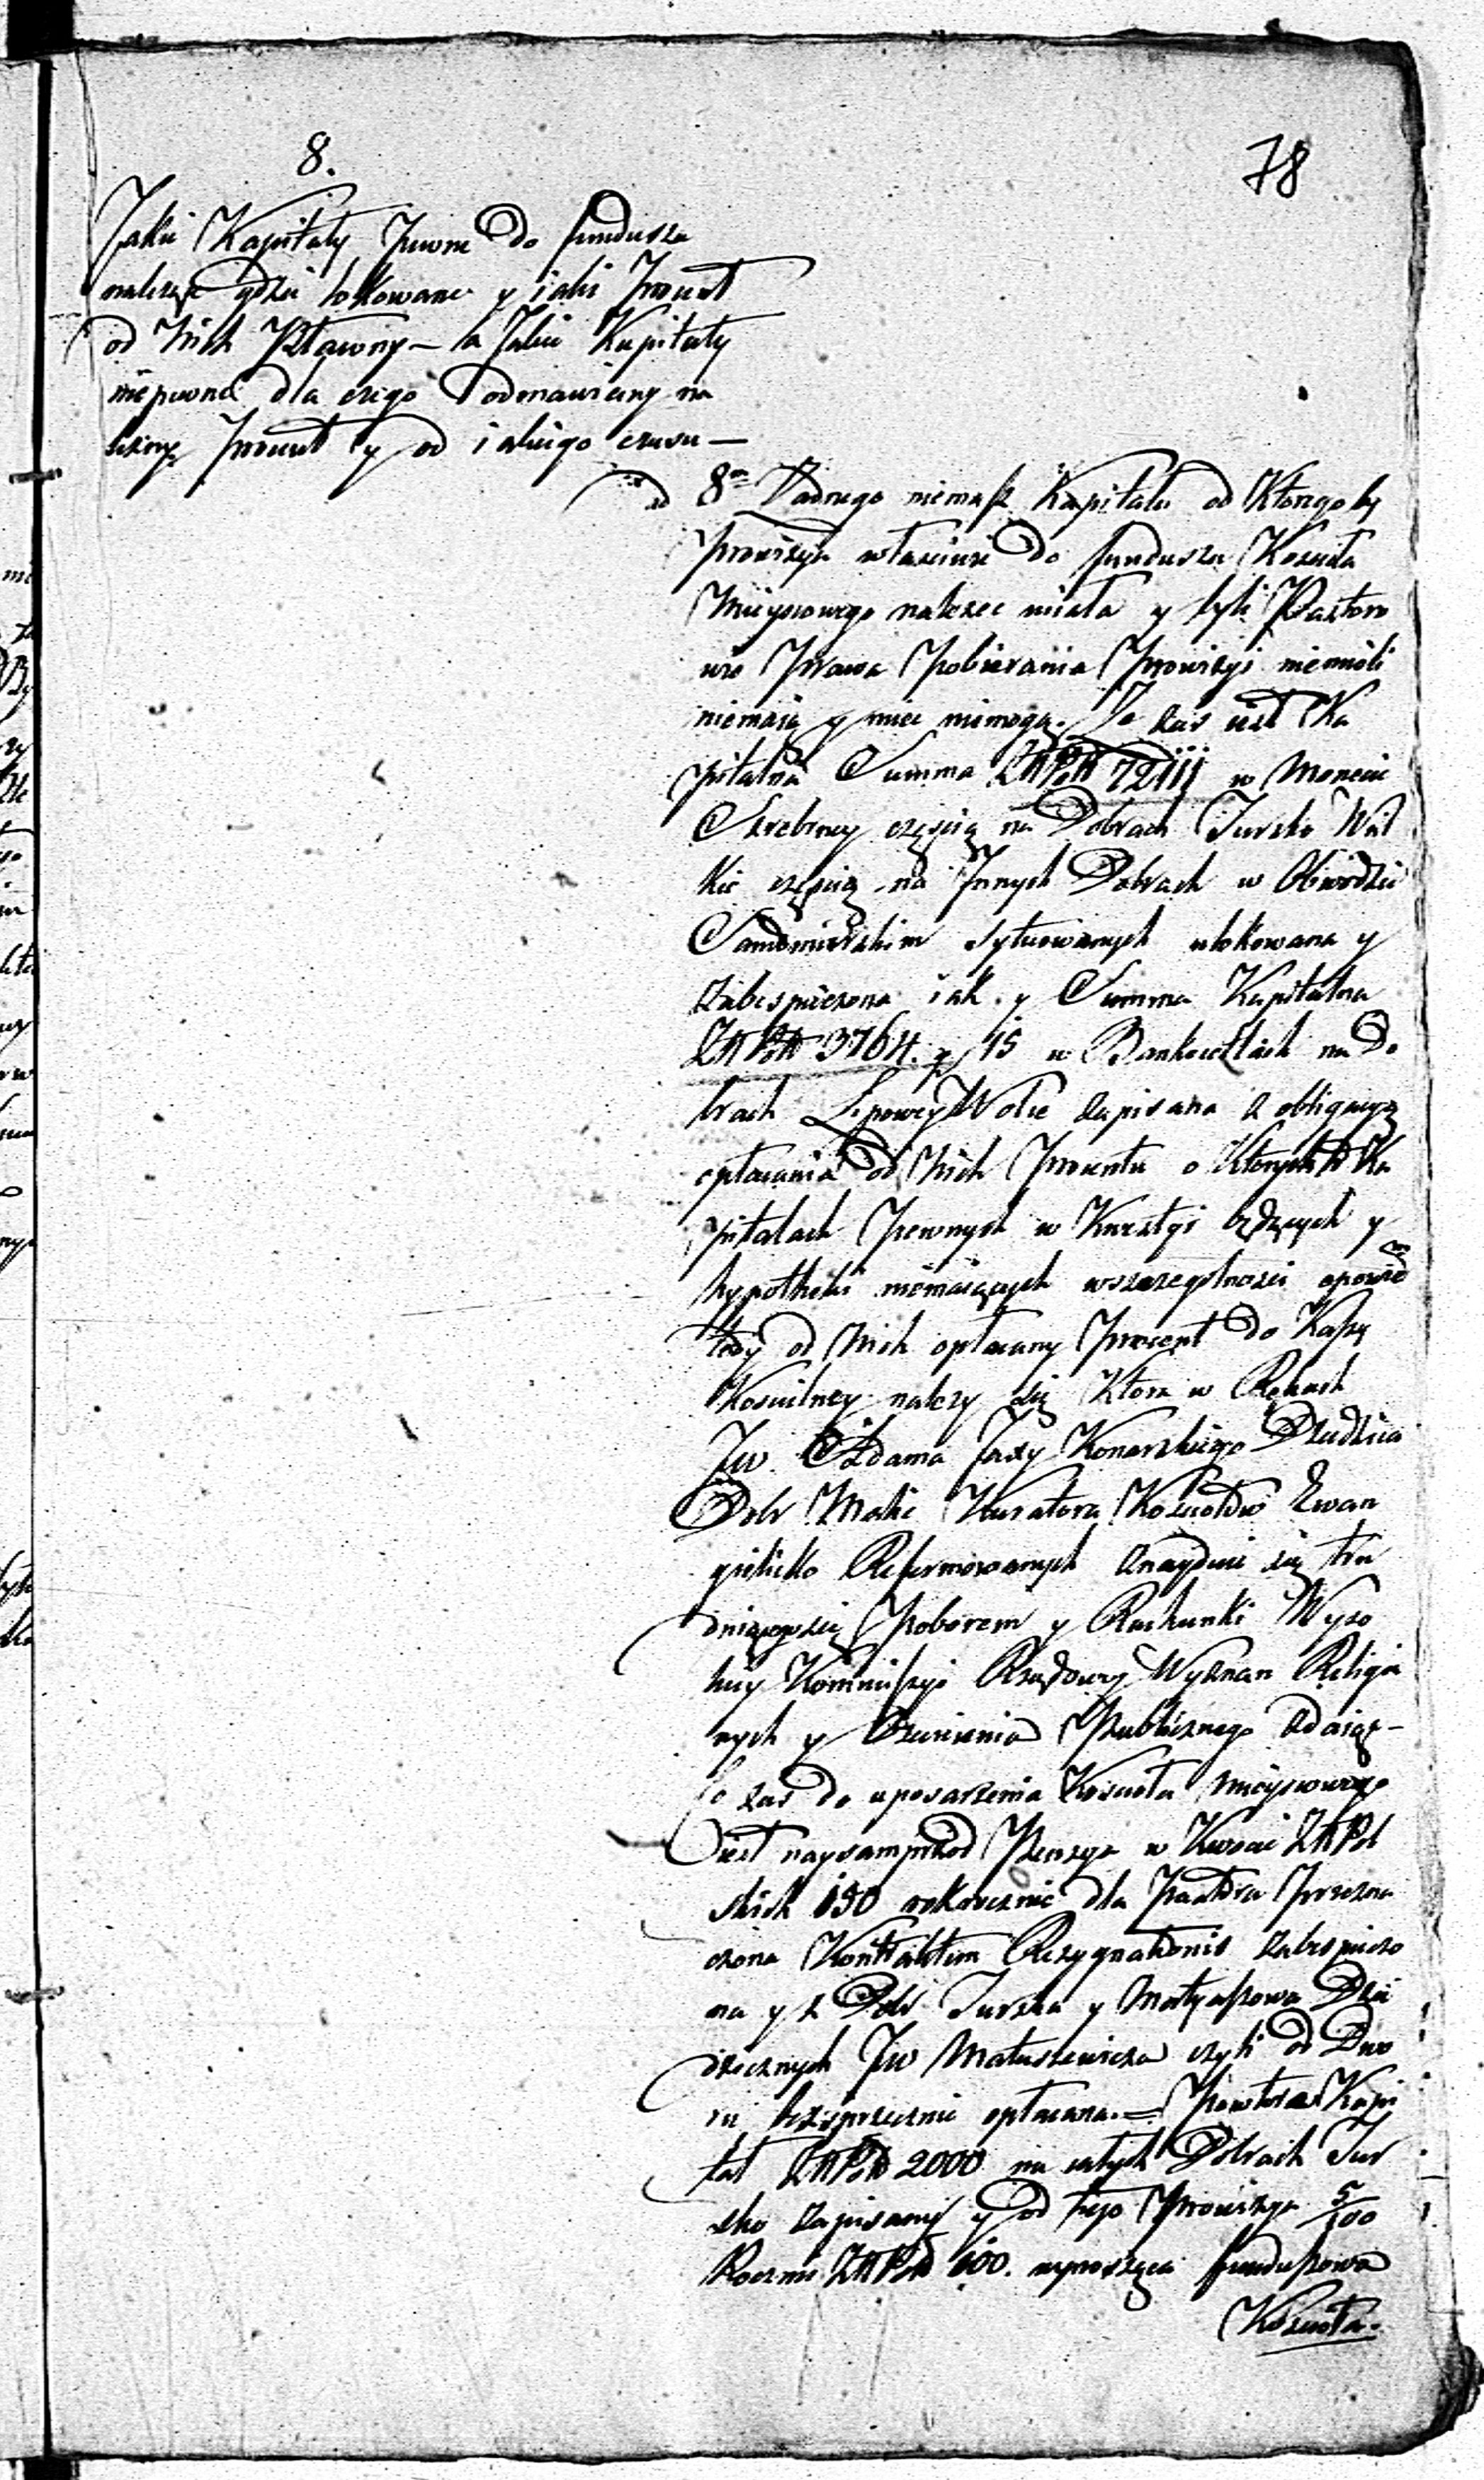 78
8.
Jakie Kapitały Pewne do funduszu
należą gdzie lokowane y iaki Procent
od Nich Płacony – a Jakie Kapitały
niepewne dla czego odmawiany na
leżny Procent y od iakiego czasu –
ad 8m Żadnego niemasz Kapitału od Ktorego by
prowizya właściwie do funduszu Kościoła
Mieyscowego należeć miała y tyli Pastoro
wie Prawa Pobierania Prowizyi niemieli
niemaią y mieć niemogą. Ze zaś iest Ka
pitalna Summa ZłPol w Monecie
Srebrney częścią na Dobrach Sursko Wiel
kie częścią na Jnnych Dobrach w Obwodzie
Sandomierskim sytuowanych ulokowana y
zabespieczona iak y Summa Kapitalna
ZłPol 3764. g 15 w Bankocetlach na Do
brach Lipowey Wolie zapisana z obligacyą
opłacania od Nich Procentu o Ktorych Ka
pitałach Pewnych w Kwestyi będących y
hypotheki niemaiących wszczególności opowie
tedy od Nich opłacany Procent do Kassy
Kościelney należy się Ktora w Rękach
Jw Adama Jaxy Konarskiego Dziedzica
Dobr Malic Kuratora Kościołow Ewan
gielicko Reformowanych znayduie się tru
dniącego się Poborem y Rachunki Wyso
kiey Kommissyi Rządowey Wyznan Religii
nych y Oswiecenia Publicznego zdaiąc –
Co zaś do uposarzenia Kościoła Mieyscowego
iest naysamprzod Pensya w Kwocie ZłPol
skich 150 rokrocznie dla Pastora Przezna
czona Kontraktem Rezygnationis zabespieczo
na y z Dobr Surska y Matyaszowa Dzie
dzicznych Jw Matuszewicza czyli od Dwo
ru bezsprzecznie opłacana. – Powtore Kapi
tał ZłPol 2000 na całych Dobrach Sur
sko Zapisany y od tego Prowizya 5/100
Rocznie ZłPol 100. wynosząca funduszowa
Kościoła.